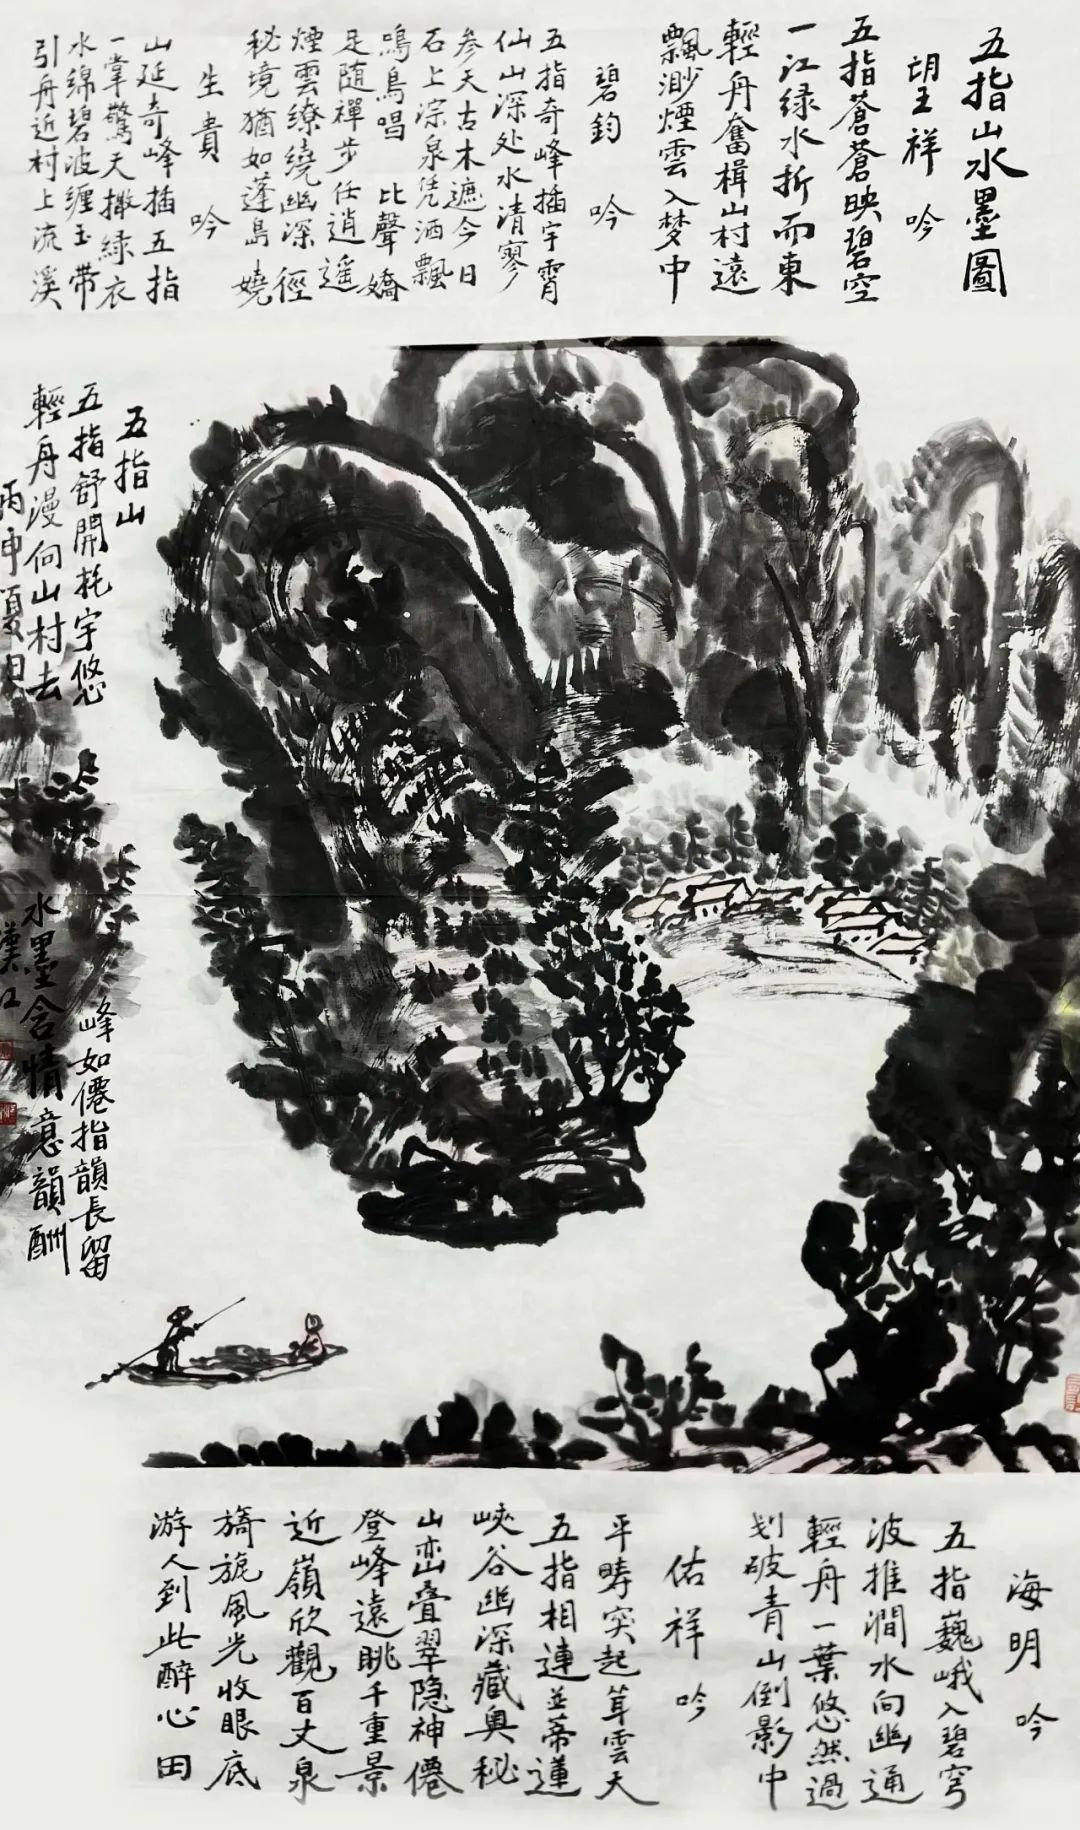 五指山水墨圖
胡玉祥 吟
五指蒼蒼映碧空
一江绿水折而東
輕舟奮楫山村遠
飄渺煙雲入梦中
碧鈞 吟
五指奇峰插宇霄
仙山深处水清寥
参天古木遮今日
石上淙泉凭洒飄
鳴鳥唱 比聲嬌
足随禪步任逍遥
煙雲繚繞幽深徑
秘境猶如蓬島嬈
生貴 吟
山延奇峰插五指
一掌驚天撒緑衣
水綿碧波缠玉带
引舟近村上流溪
五指山
五指舒開托宇悠
輕舟漫向山村去
丙申夏日
峰如僊指韻長留
水墨含情意韻酬
漢江
海明 吟
五指巍峨入碧穹
波推澗水向幽通
輕舟一葉悠然過
划破青山倒影中
佑祥 吟
平畴突起茸雲天
五指相連並蒂蓮
峽谷幽深藏奥秘
山峦疊翠隐神僊
登峰遠眺千重景
近嶺欣觀百丈泉
旖旎風光收眼底
游人到此醉心田